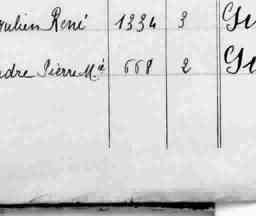 oulien René 1334 3
adre Pierre M.ie 668 2